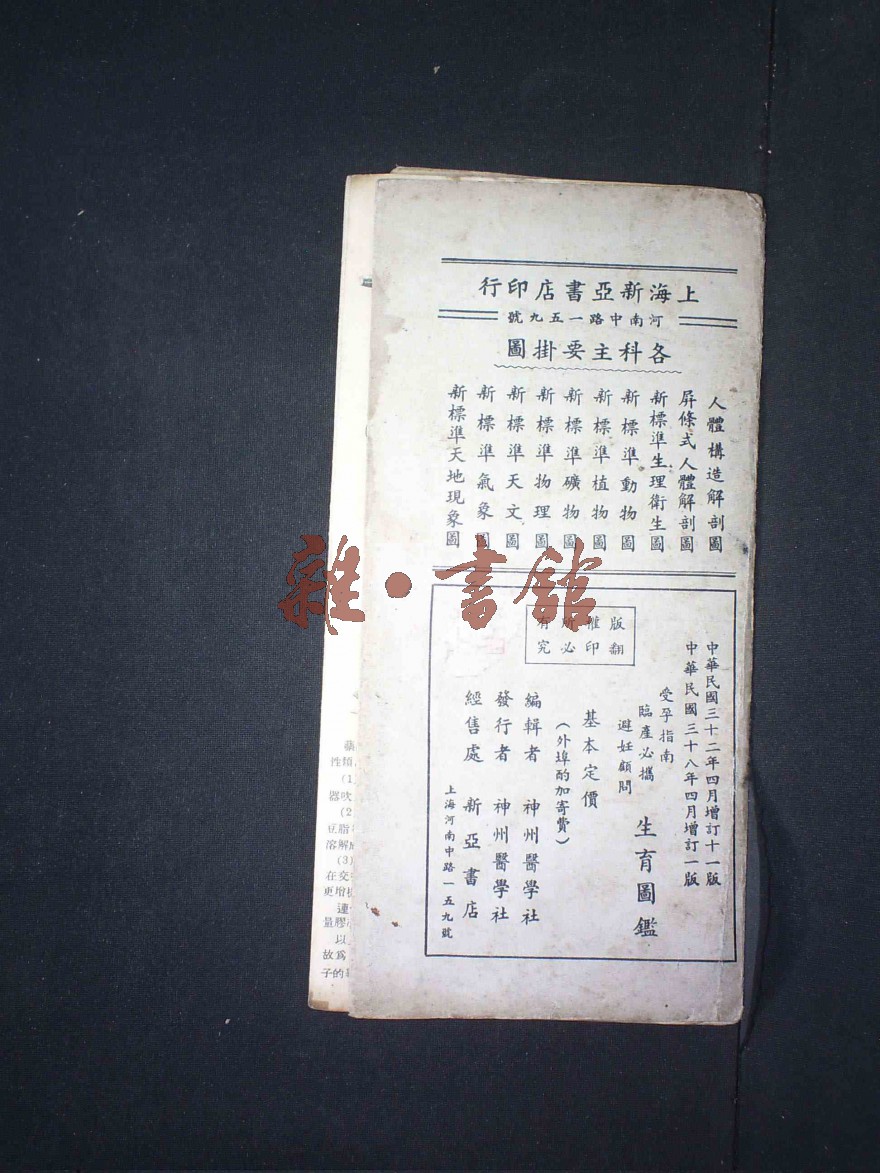 上海新亞書店印行
河南中路一五九號
各科主要掛圖
人體構造解剖圖
屏條式人體解剖圖
新標準生理衛生圖
新標準動物圖
新標準植物圖
新標準礦物圖
新標準物理圖
新標準天文圖
新標準氣象圖
新標準天地現象圖
版權所有
翻印必究
中華民國三十二年四月增訂十一版
中華民國三十八年四月增訂一版
受孕指南
臨產必攜
避妊顧問
生育圖鑑
基本定價
(外埠酌加寄費)
編輯者 神州醫學社
發行者 神州醫學社
經售處 新亞書店
上海河南中路一五九號
雜·書館
性類
(1
器吹
(2
豆脂
溶解
(3)
在交
更增
連
量膠
以
故爲
子的